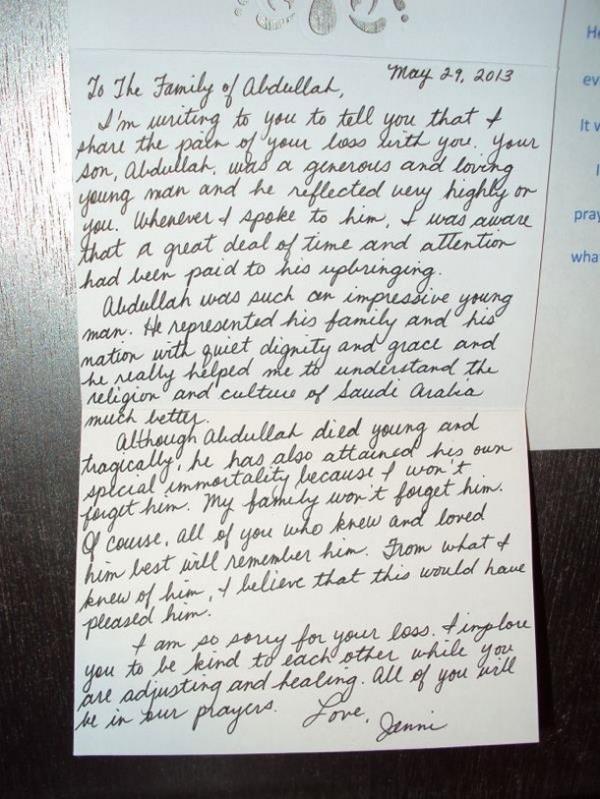 May 29, 2013
To The Family of Abdullah,
I'm writing to you to tell you that I
share the pain of your loss with you. Your
son, Abdullah, was a generous and loving
young man and he reflected very highly on
you. Whenever I spoke to him, I was aware
that a great deal of time and attention
had been paid to his upbringing.
Abdullah was such an impressive young
man. He represented his family and his
nation with quiet dignity and grace and
he really helped me to understand the
religion and culture of Saudi Arabia
much better.
Although Abdullah died young and
tragically, he has also attained his own
special immortality because I won't
forget him. My family won't forget him.
Of course, all of you who knew and loved
him best will remember him. From what I
knew of him, I believe that this would have
pleased him.
I am so sorry for your loss. I implore
you to be kind to each other while you
are adjusting and healing. All of you will
be in our prayers. Love,
Jenni
He
ev
It w
pray
wha